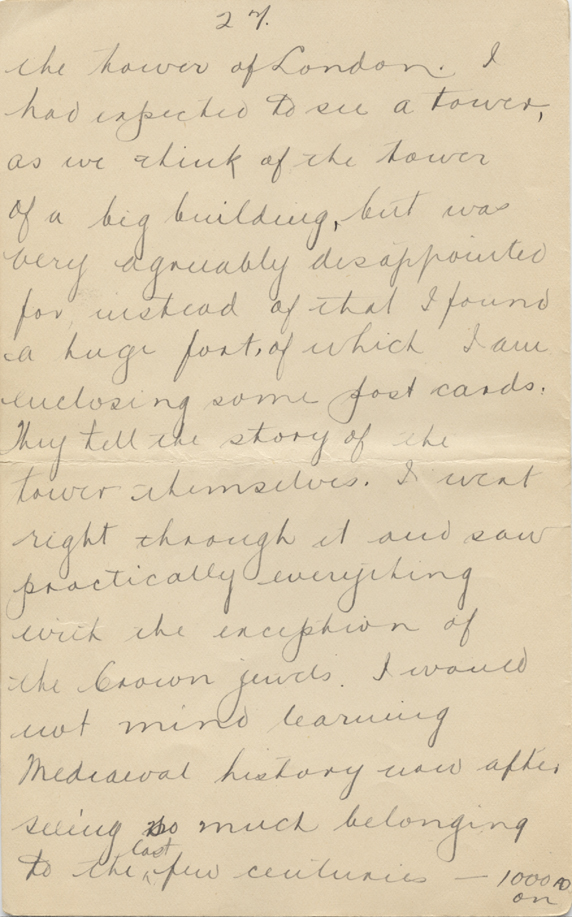 27.
the tower of London. I
had expected to see a tower,
as we think of the tower
of a big building, but was
very agreeably disappointed
for, instead of that I found
a huge fort, of which I am
enclosing some post cards.
They tell the story of the
tower themselves. I went
right through it and saw
practically everything
with the exception of
the Crown jewels. I would
not mind learning
Mediaeval history now after
seeing so much belonging
to the last few centuries — 1000 AD
on